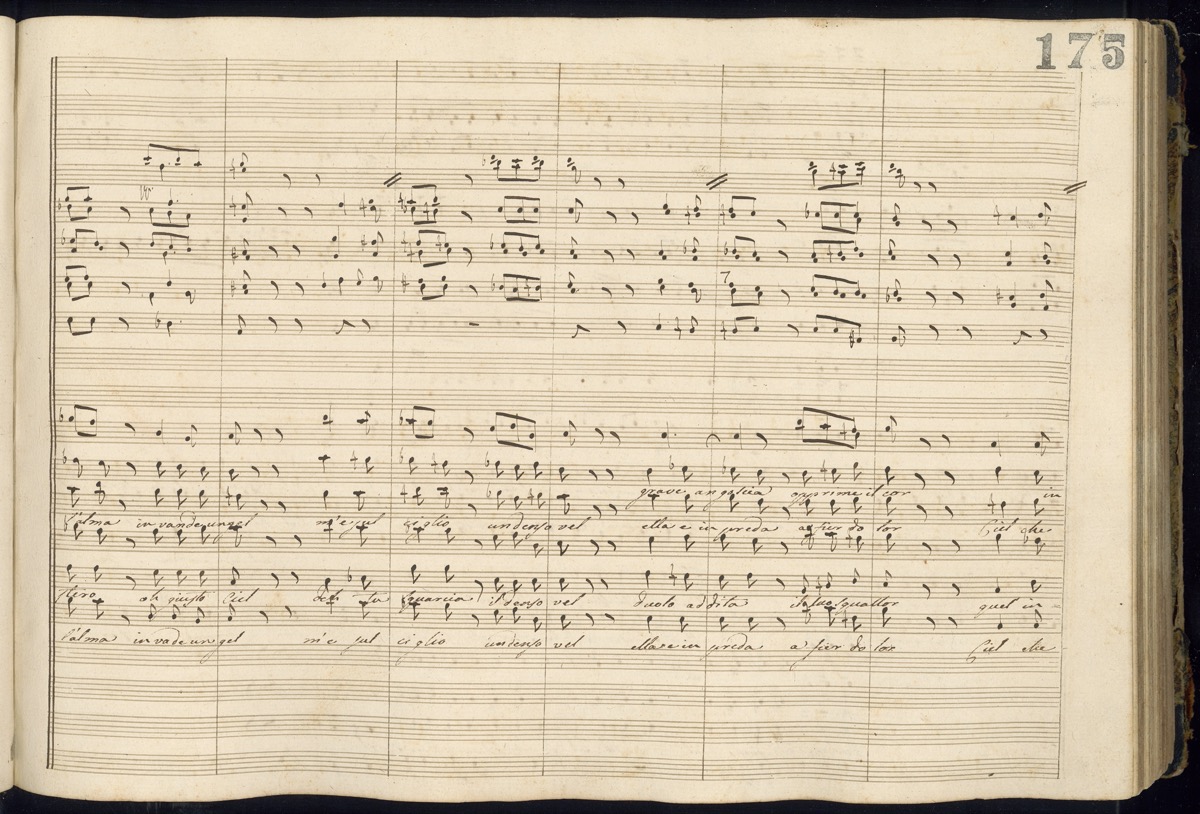 175
7
grave angoscia opprime il cor in
l'alma in vande un gel m'e sul ciglio un denso vel ella e in preda a fier do lor Ciel che
oh giusto Ciel deh tu squarcia il denso vel duolo addita quel in-
l'alma in vade un gel m'e sul ciglio un denso vel ella e in preda a fier do lor Ciel che